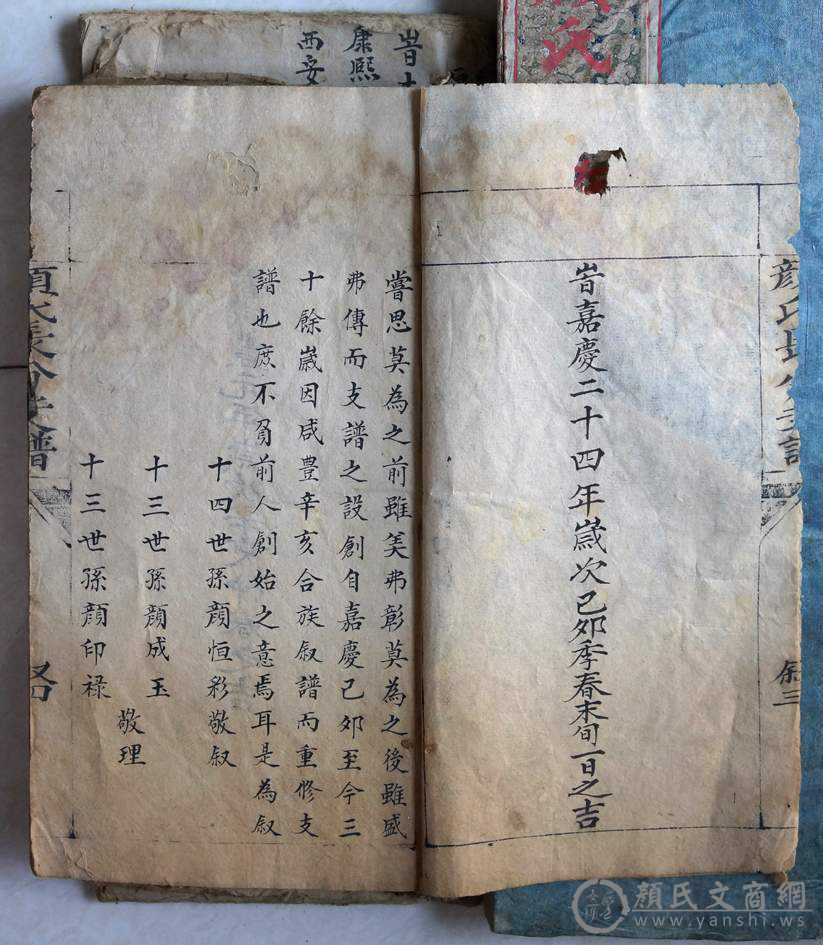 氏
旹
康熙
西安
顏氏長分支譜
叙三
旹嘉慶二十四年歲次己夘季春末旬一日之吉
嘗思莫為之前雖羙弗彰莫為之後雖盛
弗傳而支譜之設創自嘉慶己夘至今三
十餘歲因咸豊辛亥合族叙譜而重修支
譜也庻不負前人創始之意焉耳是為叙
十四世孫顏恒彩敬叙
十三世孫顏成玉
敬理
十三世孫顏印祿
顏氏長分支譜
叙四
顏氏文商網
www.yanshi.ws